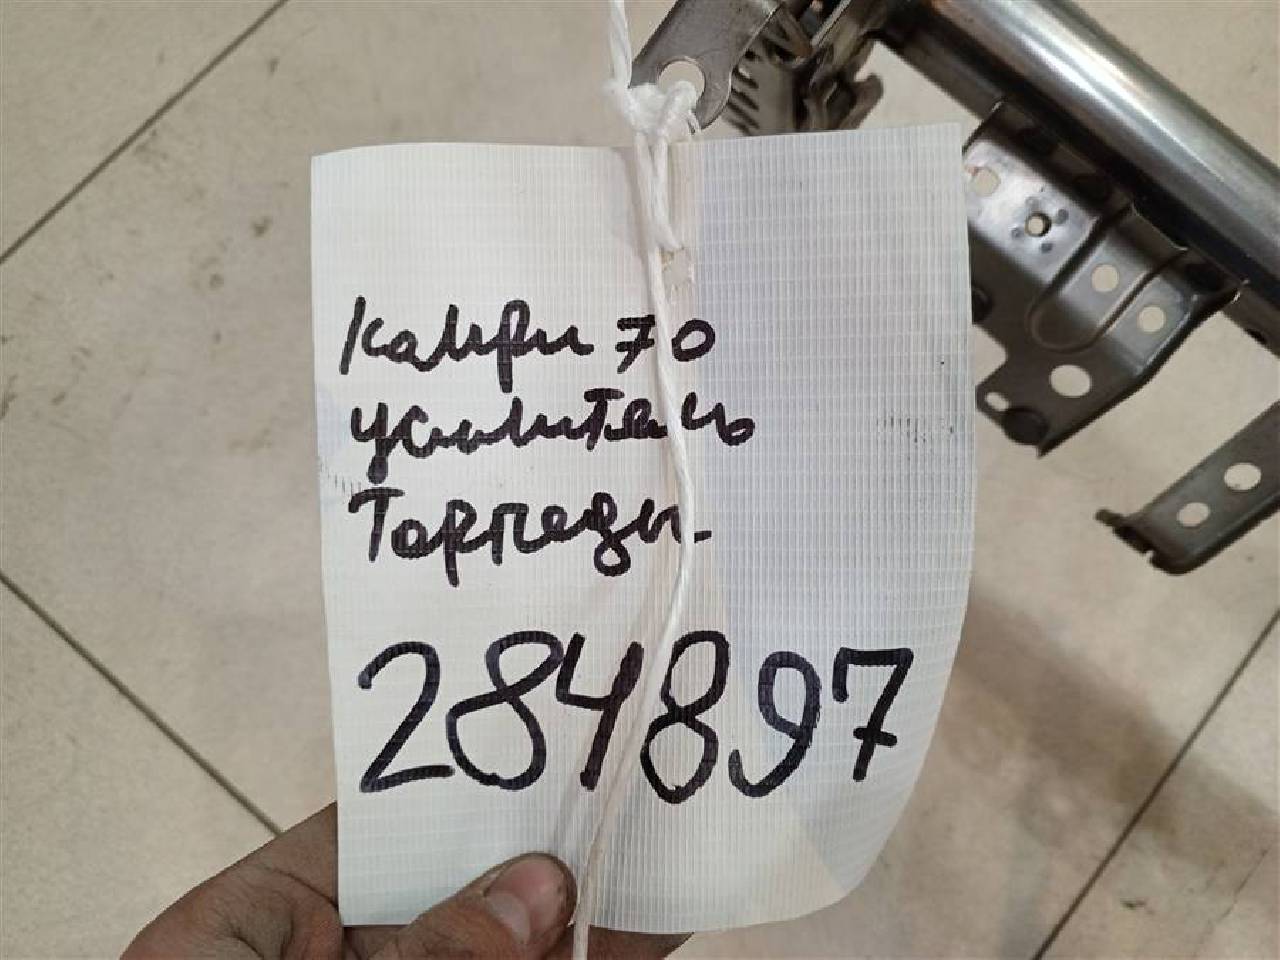 Камри 70
усилитель
Торпеды
284897